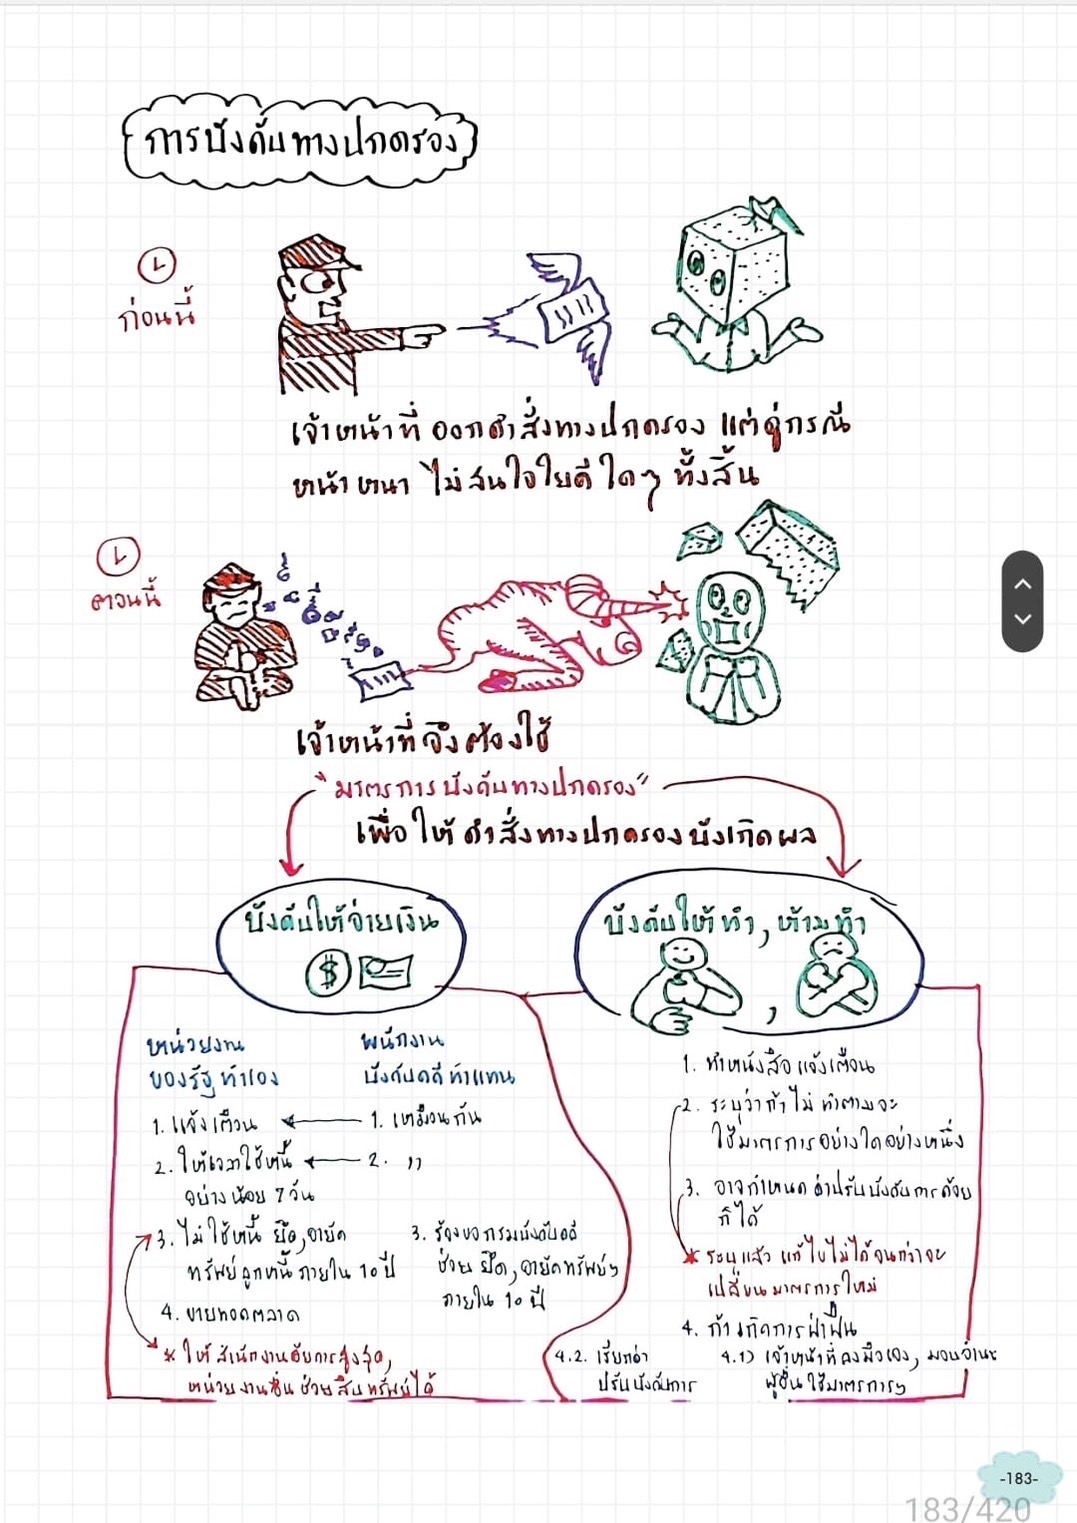 การบังคับทางปกครอง
ก่อนนี้
เจ้าหน้าที่ ออกคำสั่งทางปกครอง แต่คู่กรณี
หน้าหนา ไม่สนใจใยดีใดๆ ทั้งสิ้น
ตอนนี้
เจ้าหน้าที่จึงต้องใช้
"มาตรการบังคับทางปกครอง"
เพื่อให้คำสั่งทางปกครองบังเกิดผล
บังคับให้จ่ายเงิน
$
บังคับให้ทำ, ห้ามทำ
,
หน่วยงาน
ของรัฐ ทำเอง
1. แจ้งเตือน
2. ให้เวลาใช้หนี้
อย่างน้อย 7 วัน
3. ไม่ใช้หนี้ ยึด, อายัด
ทรัพย์ลูกหนี้ ภายใน 10 ปี
4. ขายทอดตลาด
* ให้สำนักงานอัยการสูงสุด,
หน่วยงานอื่น ช่วยสืบทรัพย์ได้
พนักงาน
บังคับคดี ทำแทน
1. เหมือนกัน
2. ,,
3. ร้องขอกรมบังคับคดี
ช่วย ยึด, อายัดทรัพย์ฯ
ภายใน 10 ปี
1. ทำหนังสือแจ้งเตือน
2. ระบุว่าถ้าไม่ ทำตามจะ
ใช้มาตรการอย่างใดอย่างหนึ่ง
3. อาจกำหนด ค่าปรับบังคับการด้วย
ก็ได้
* ระบุแล้ว แก้ไขไม่ได้จนกว่าจะ
เปลี่ยนมาตรการใหม่
4. ถ้าเกิดการฝ่าฝืน
4.1) เจ้าหน้าที่ลงมือเอง, มอบอำนาจ
ผู้อื่น ใช้มาตรการฯ
4.2. เรียกค่า
ปรับบังคับการ
-183-
183/420